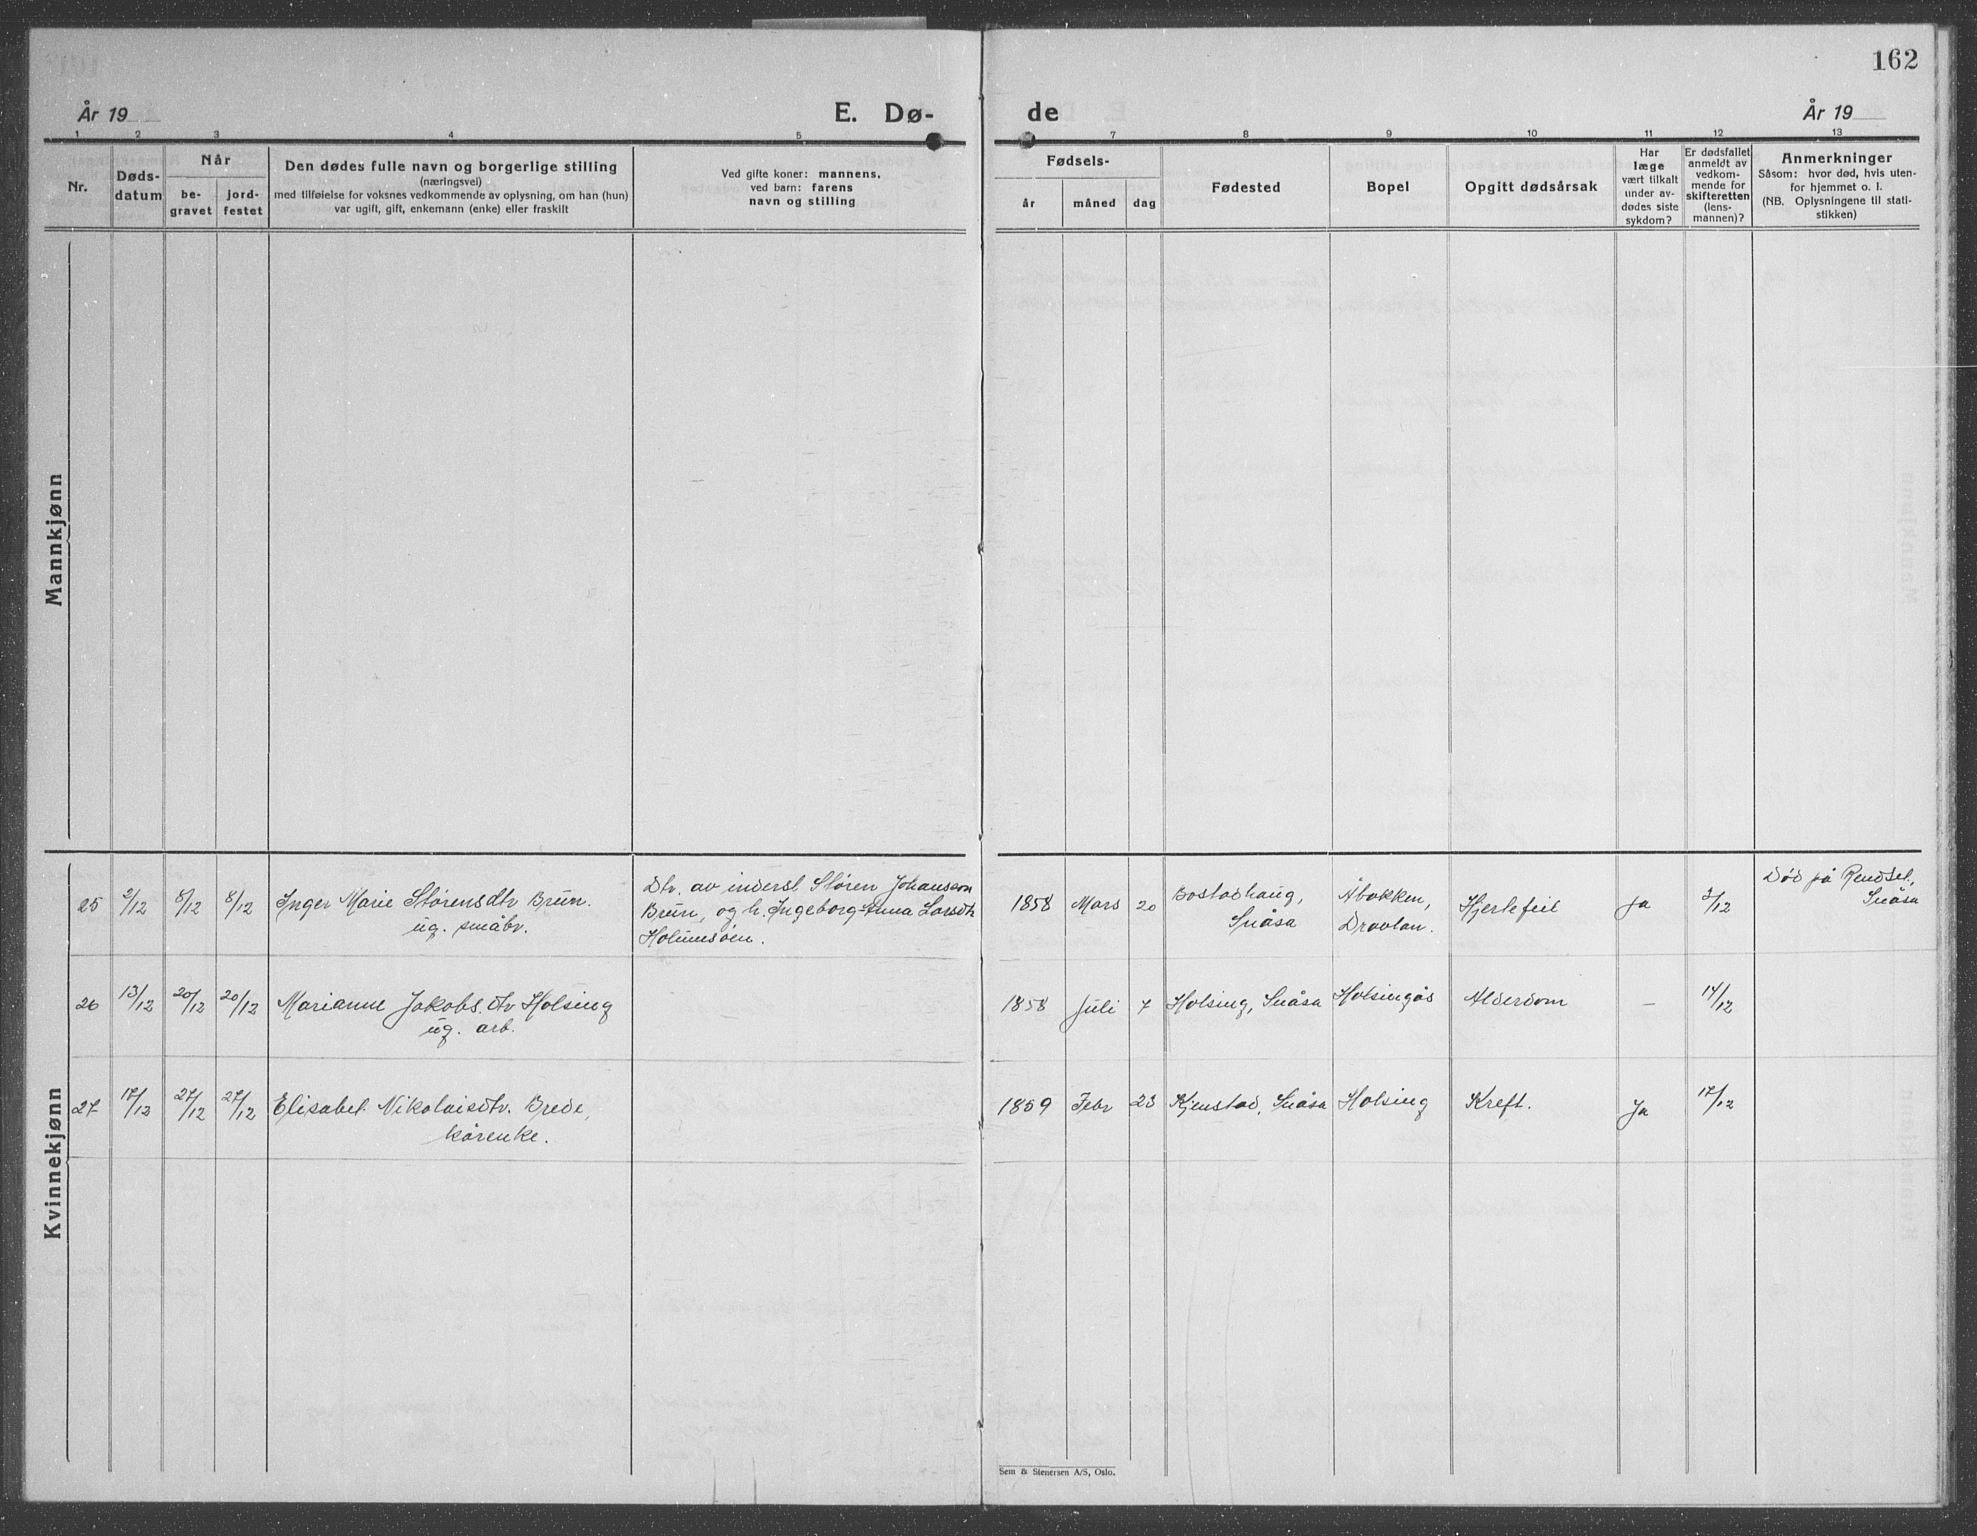 162
År 19
E. Dø-
de
År 19
1 2 3 4 5 7 8 9 10 11 12 13
Nr.
Døds-
datum
Når
be-
gravet
jord-
festet
Den dødes fulle navn og borgerlige stilling
(næringsvei)
med tilføielse for voksnes vedkommende av oplysning, om han (hun)
var ugift, gift, enkemann (enke) eller fraskilt
Ved gifte koner: mannens,
ved barn: farens
navn og stilling
Fødsels-
år
måned
dag
Fødested
Bopel
Opgitt dødsårsak
Har
læge
vært tilkalt
under av-
dødes siste
sykdom?
Er dødsfallet
anmeldt av
vedkom-
mende for
skifteretten
(lens-
mannen)?
Anmerkninger
Såsom: hvor død, hvis uten-
for hjemmet o. l.
(NB. Oplysningene til stati-
stikken)
Mannkjønn
Kvinnekjønn
25 2/12 8/12 8/12 Inger Marie Størensdtr Brun.
ug. småbr.
Dtr. av inderst Støren Johanson
Brun, og h. Ingeborg-Anna Larsdtr
Holumsøen.
1858 Mars 20 Bostadhaug,
Snåsa
Åbakken,
Dravlan.
Hjertefeil Ja 3/12
Død på Rendset,
Snåsa
26 13/12 20/12 20/12 Marianne Jakobs.dtr Holsing
ug. arb.
1858 Juli 7 Holsing, Snåsa Holsingås Alderdom - 14/12
27 17/12 27/12 27/12 Elisabet Nikolaisdtr. Brede,
kårenke.
1859 Febr 23 Kjenstad, Snåsa Holsing Kreft. Ja 17/12
Sem & Stenersen A/S, Oslo.